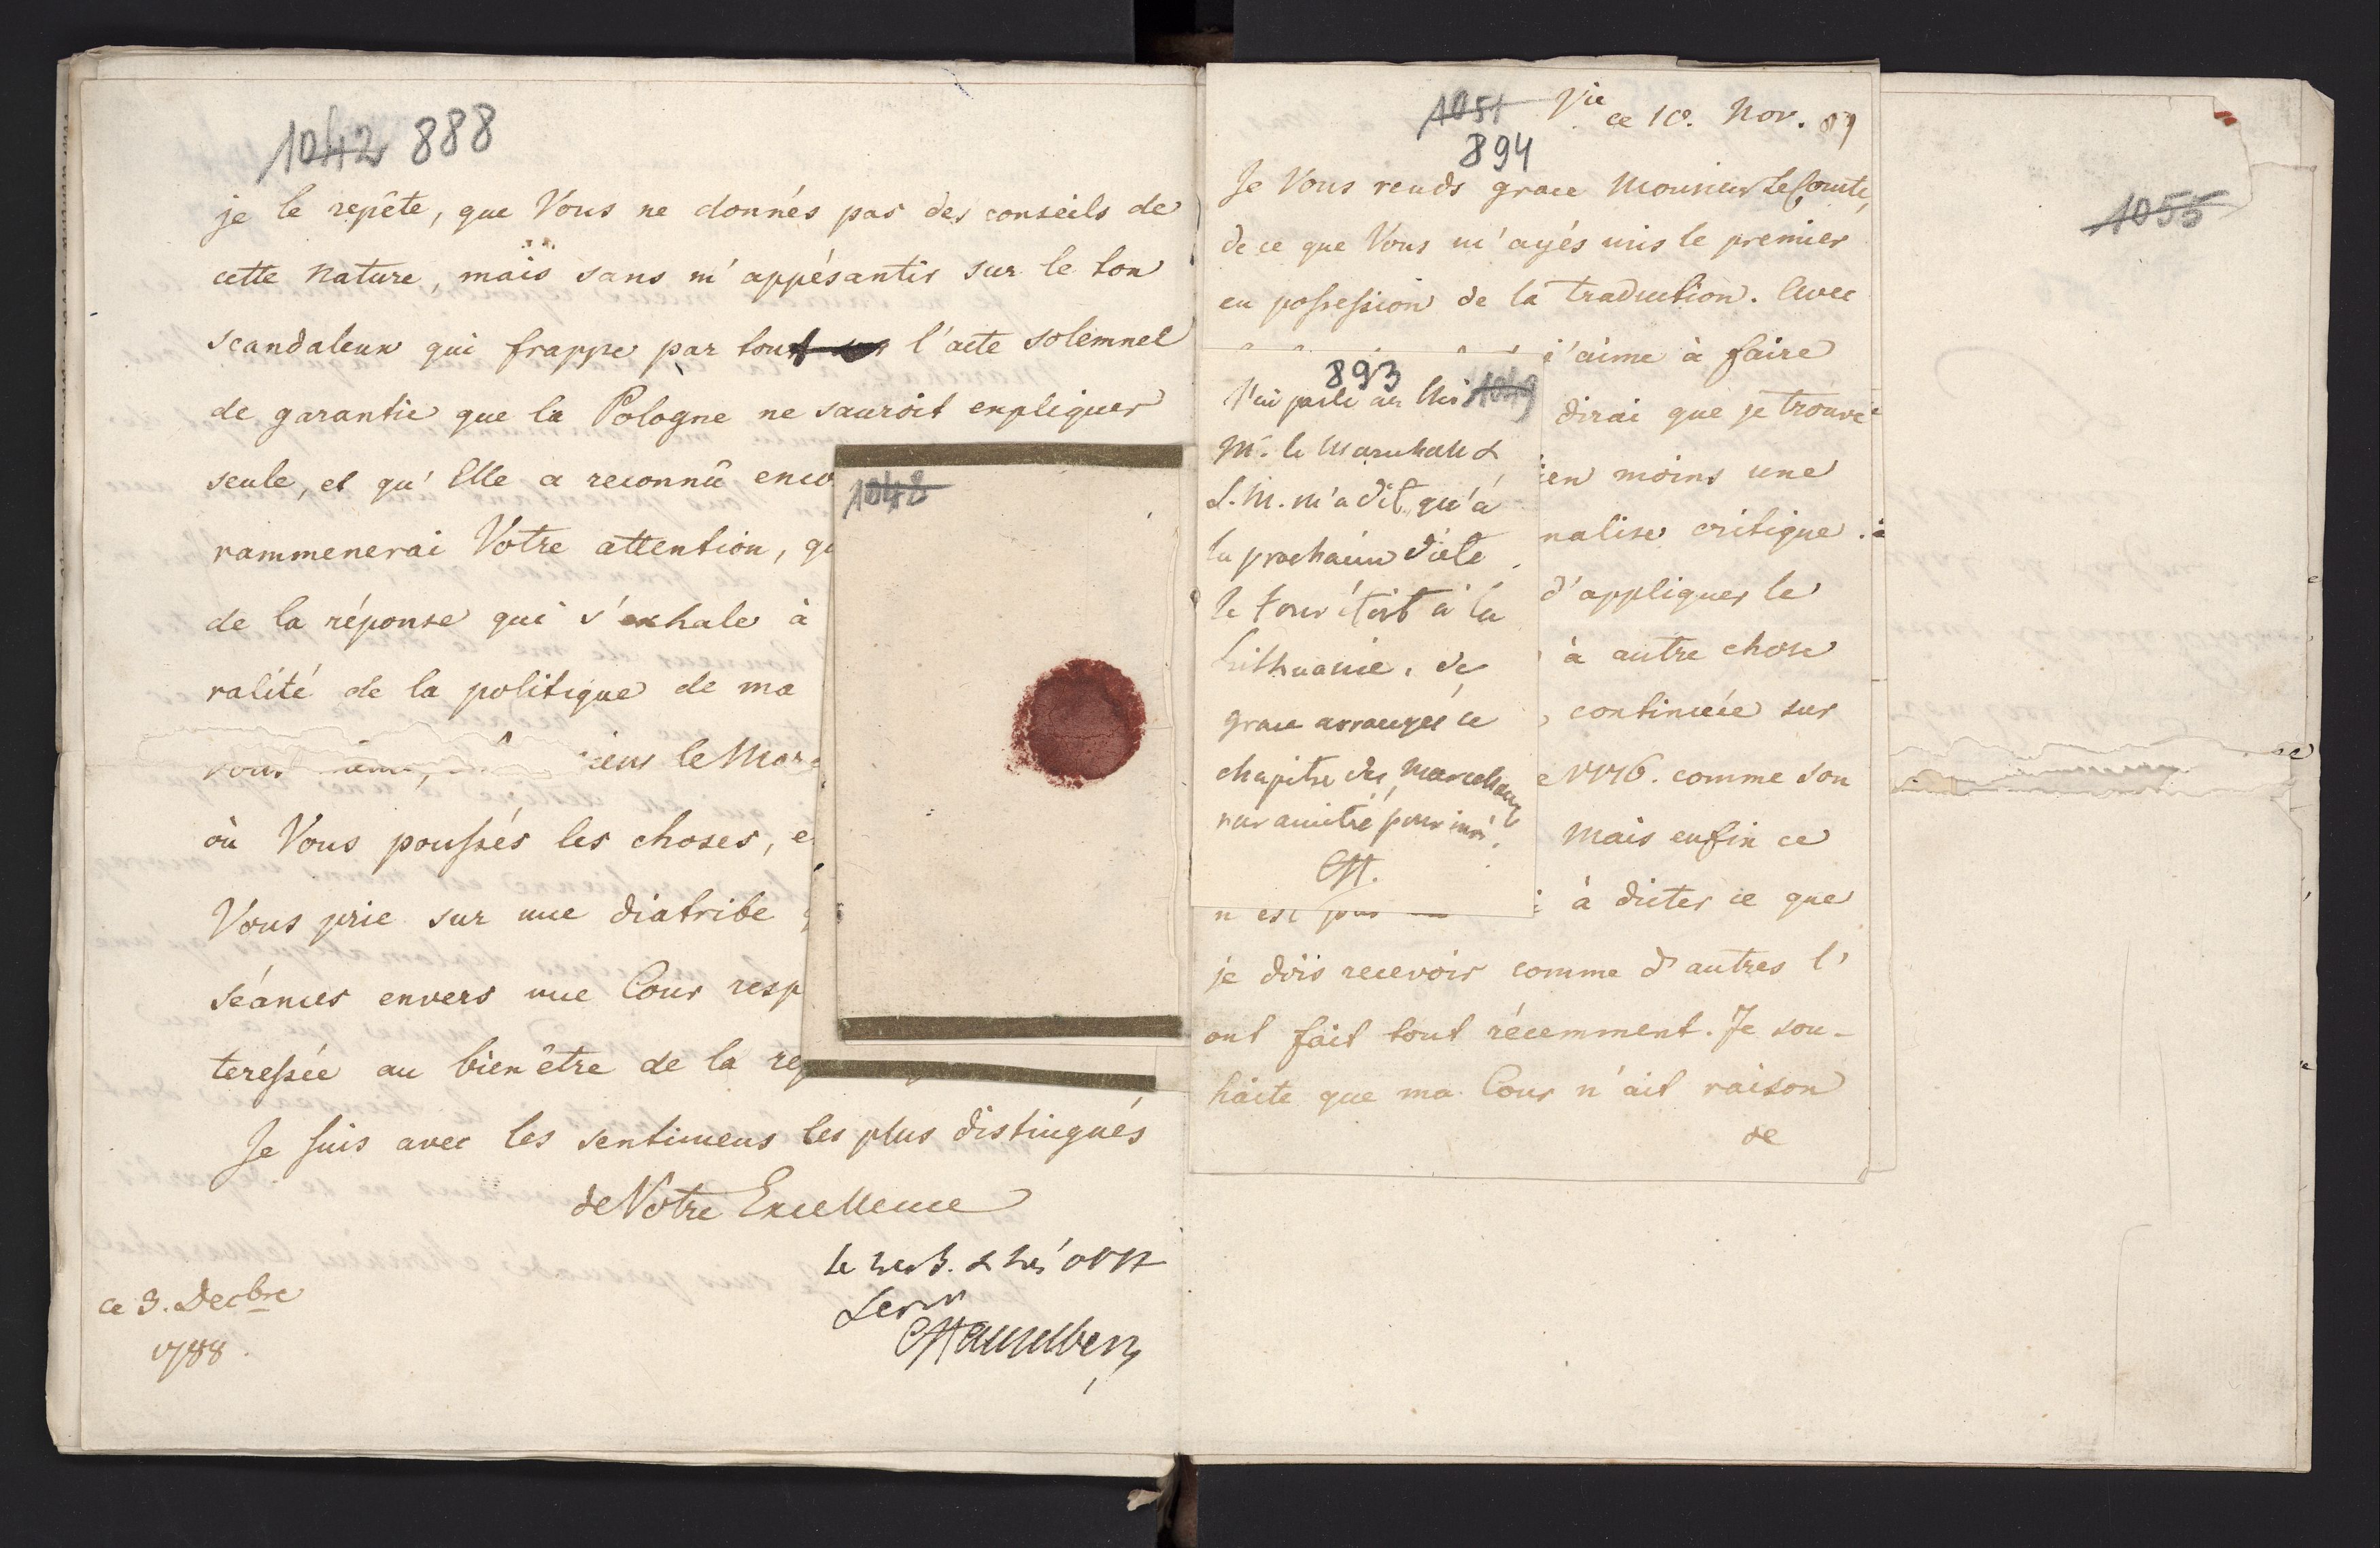 1042 888
je le repête, que Vous ne donnés pas des conseils de
cette nature, mais sans m'appésantir sur le ton
scandaleux qui frappe par tout l'acte solemnel
de garantie que la Pologne ne sauroit expliquer
seule, et qu'Elle a reconnû enco
rammenerai Votre attention, qu
de la réponse qui s'exhale à
ralité de la politique de ma
vous le Mar
où Vous poussés les choses, e
Vous prie sur une diatribe
séances envers une Cour resp
teressée au bien être de la rep
Je suis avec les sentimens les plus distingués
de Votre Excellence
le
Serv
CStackelberg
ce 3. Decbre
1788.
1048
893
1049
J'ai parlé au
Mr. le Marechal &
S. M. m'a dit, qu'à
la prochaine diete
le tour étoit à la
Lithuanie. de
grace arrangés ce
chapitre des Marechaux
par amitié pour moi.
CSt.
1051
894
ce 10. Nov. 89
Je Vous rends grace Monsieur Le Comte,
de ce que Vous m'ayés mis le premier
en possession de la traduction. Avec
j'aime à faire
dirai que je trouve
en moins une
nalise critique.
d'appliquer le
à autre chose
, continuée sur
1776. comme son
Mais enfin ce
n'est pas à dicter ce que
je dois recevoir comme d'autres l'
ont fait tout récemment. Je sou-
haite que ma Cour n'ait raison
de
1055